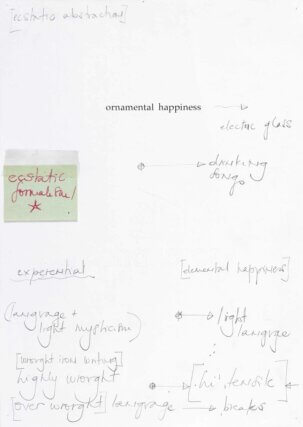 [ecstatic abstraction]
ornamental happiness
electric glass
ecstatic
formalism/
drinking
songs
experiential
[elemental happiness]
(language +
light mysticism)
light
language
[wrought iron writing]
highly wrought
[hi-tensile]
[over wrought] language
breaks